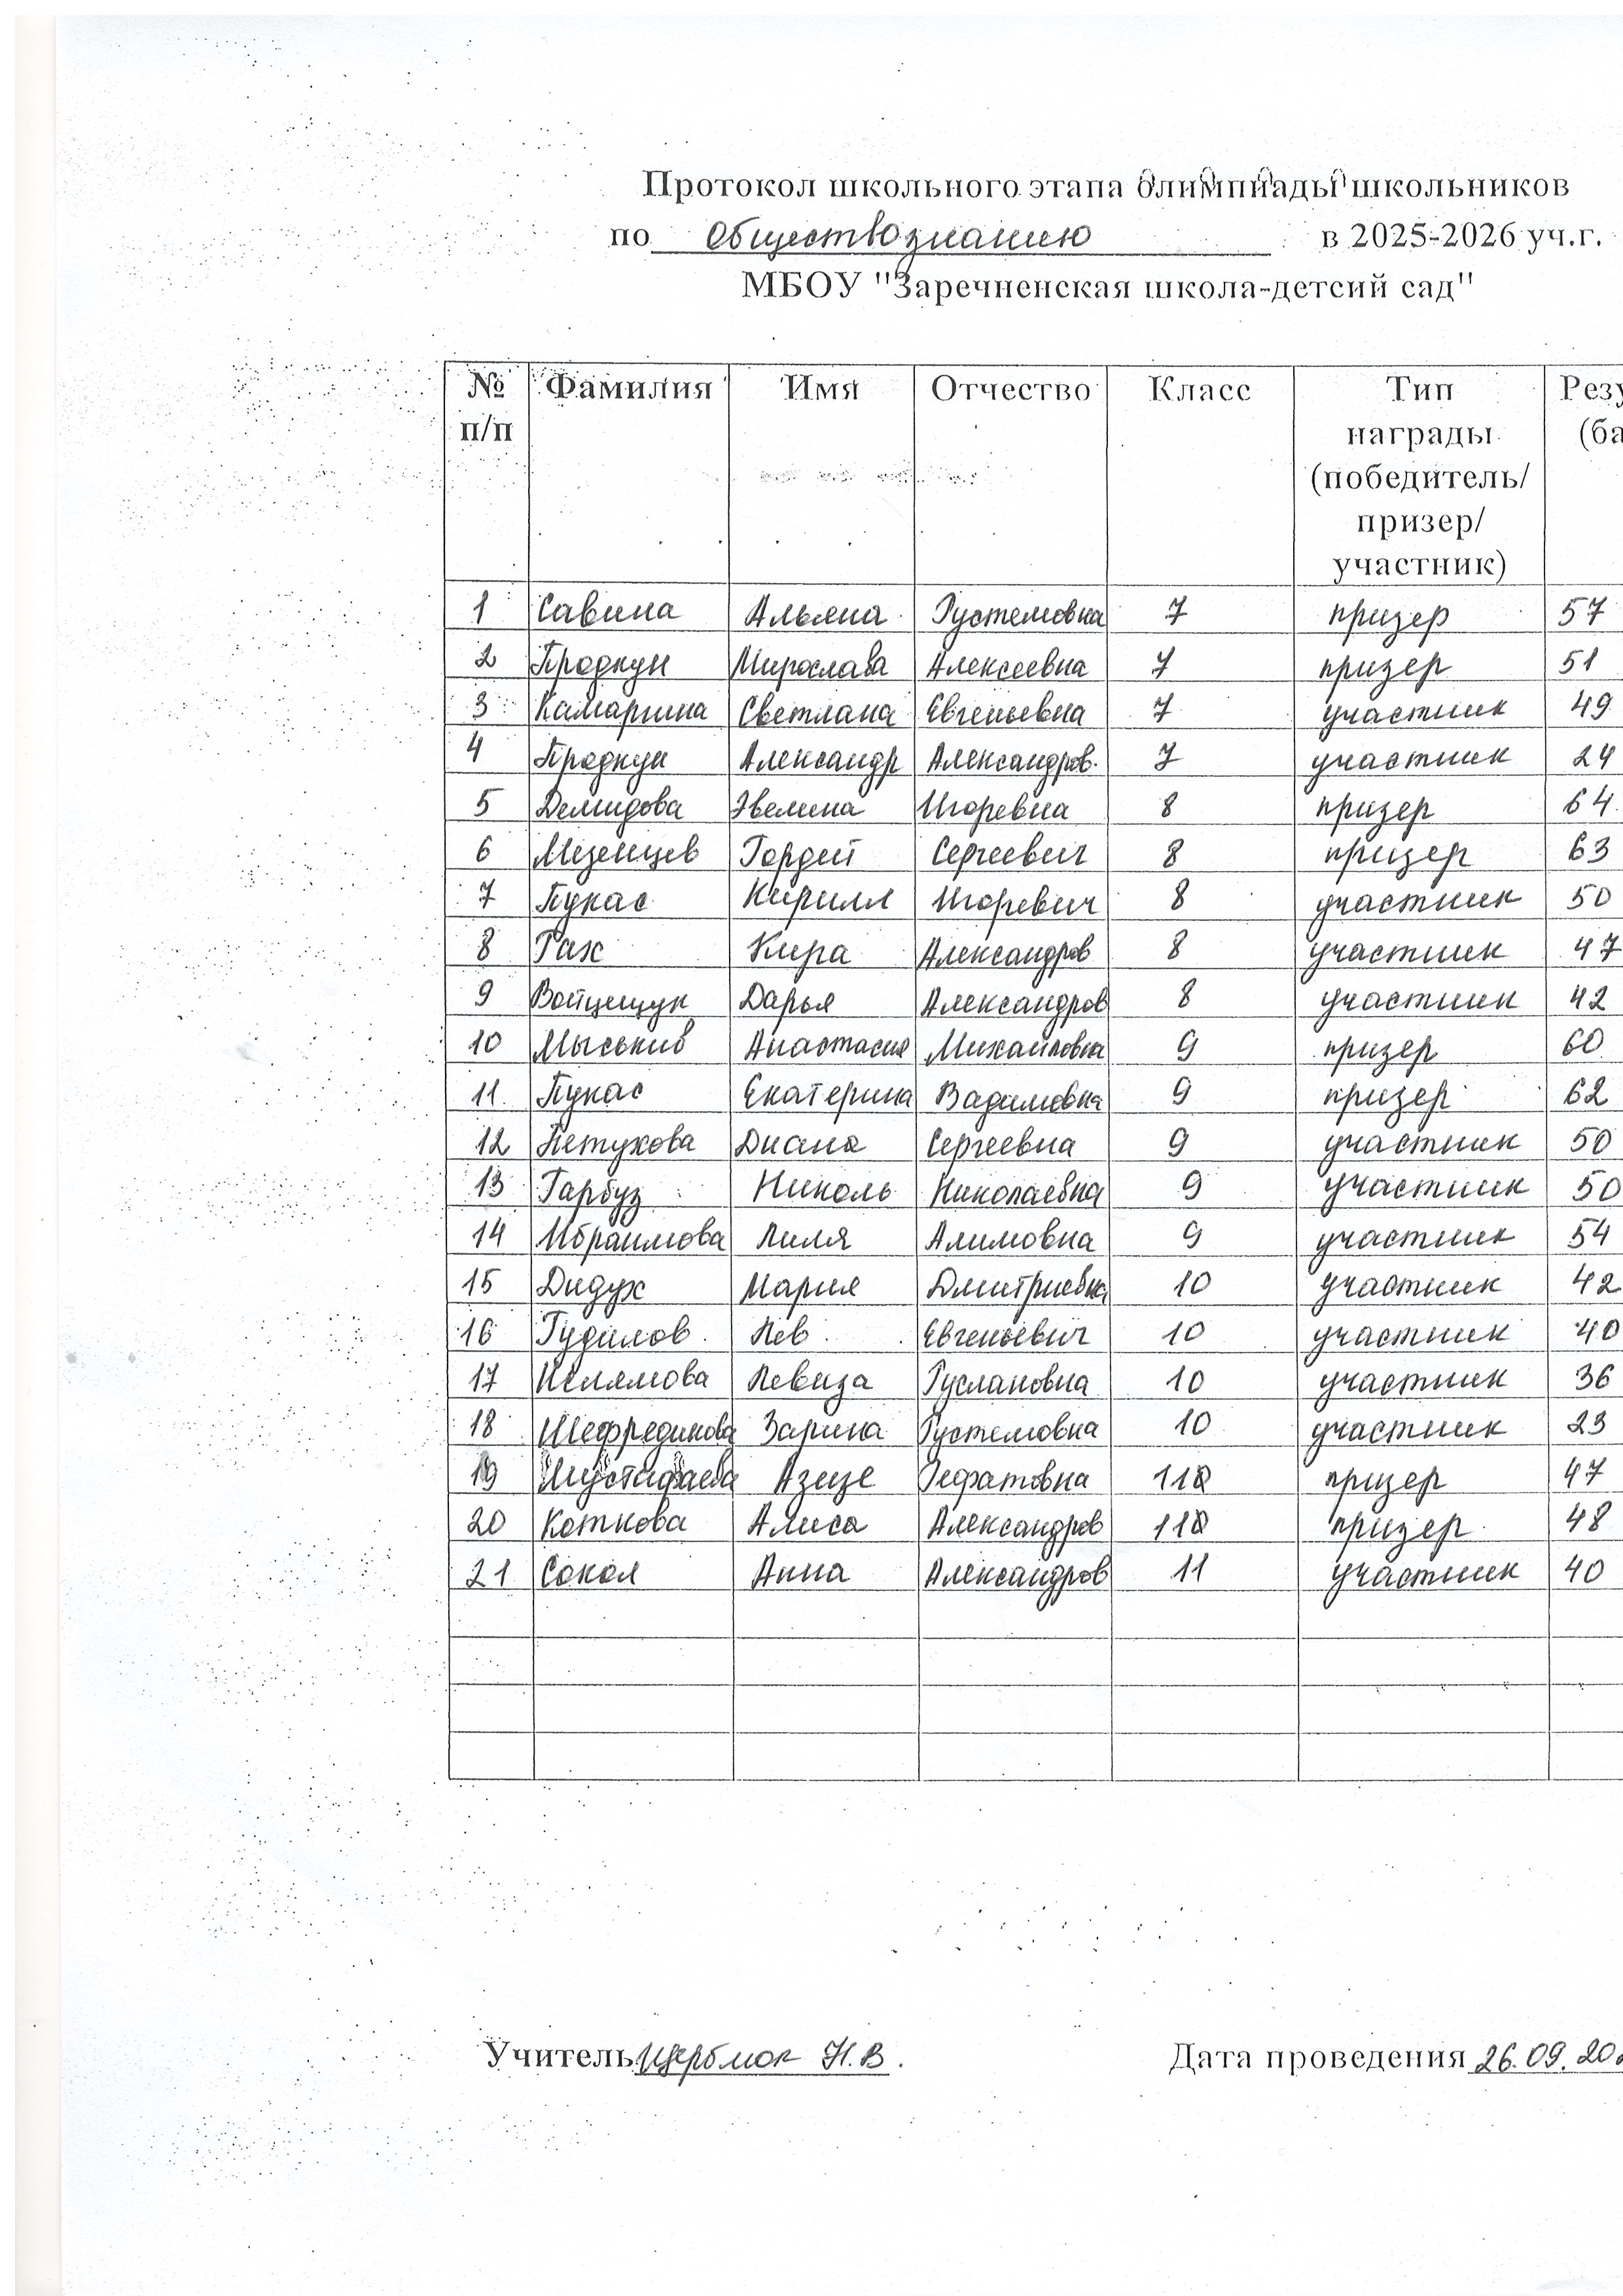 Протокол школьного этапа олимпиады школьников
по обществознанию в 2025-2026 уч.г.
МБОУ "Заречненская школа-детсий сад"
№ Фамилия Имя Отчество Класс Тип Резу
п/п награды (ба
(победитель/
призер/
участник)
1 Савина Альяна Рустемовна 7 призер 57
2 Продкун Мирослава Алексеевна 7 призер 51
3 Камаршна Светлана Евгеньевна 7 участник 49
4 Продкун Александр Александров. 7 участник 24
5 Демидова Эвелина Игоревна 8 призер 64
6 Мезенцев Гордей Сергеевич 8 призер 63
7 Лукас Кирилл Игоревич 8 участник 50
8 Рак Кира Александров 8 участник 47
9 Войцещук Дарья Александров 8 участник 42
10 Мыськив Анастасия Михайловна 9 призер 60
11 Лукас Екатерина Вадимовна 9 призер 62
12 Петухова Диана Сергеевна 9 участник 50
13 Гарбуз Николь Николаевна 9 участник 50
14 Ибраимова Лиля Алимовна 9 участник 54
15 Дидух Мария Дмитриевна 10 участник 42
16 Гудилов Лев Евгеньевич 10 участник 40
17 Велямова Левиза Руслановна 10 участник 36
18 Шефрединова Зарина Рустемовна 10 участник 23
19 Мустафаева Азизе Рефатовна 11 призер 47
20 Коткова Алиса Александров 11 призер 48
21 Сокол Анна Александров 11 участник 40
Учитель Щерблюк Н.В. Дата проведения 26.09.202